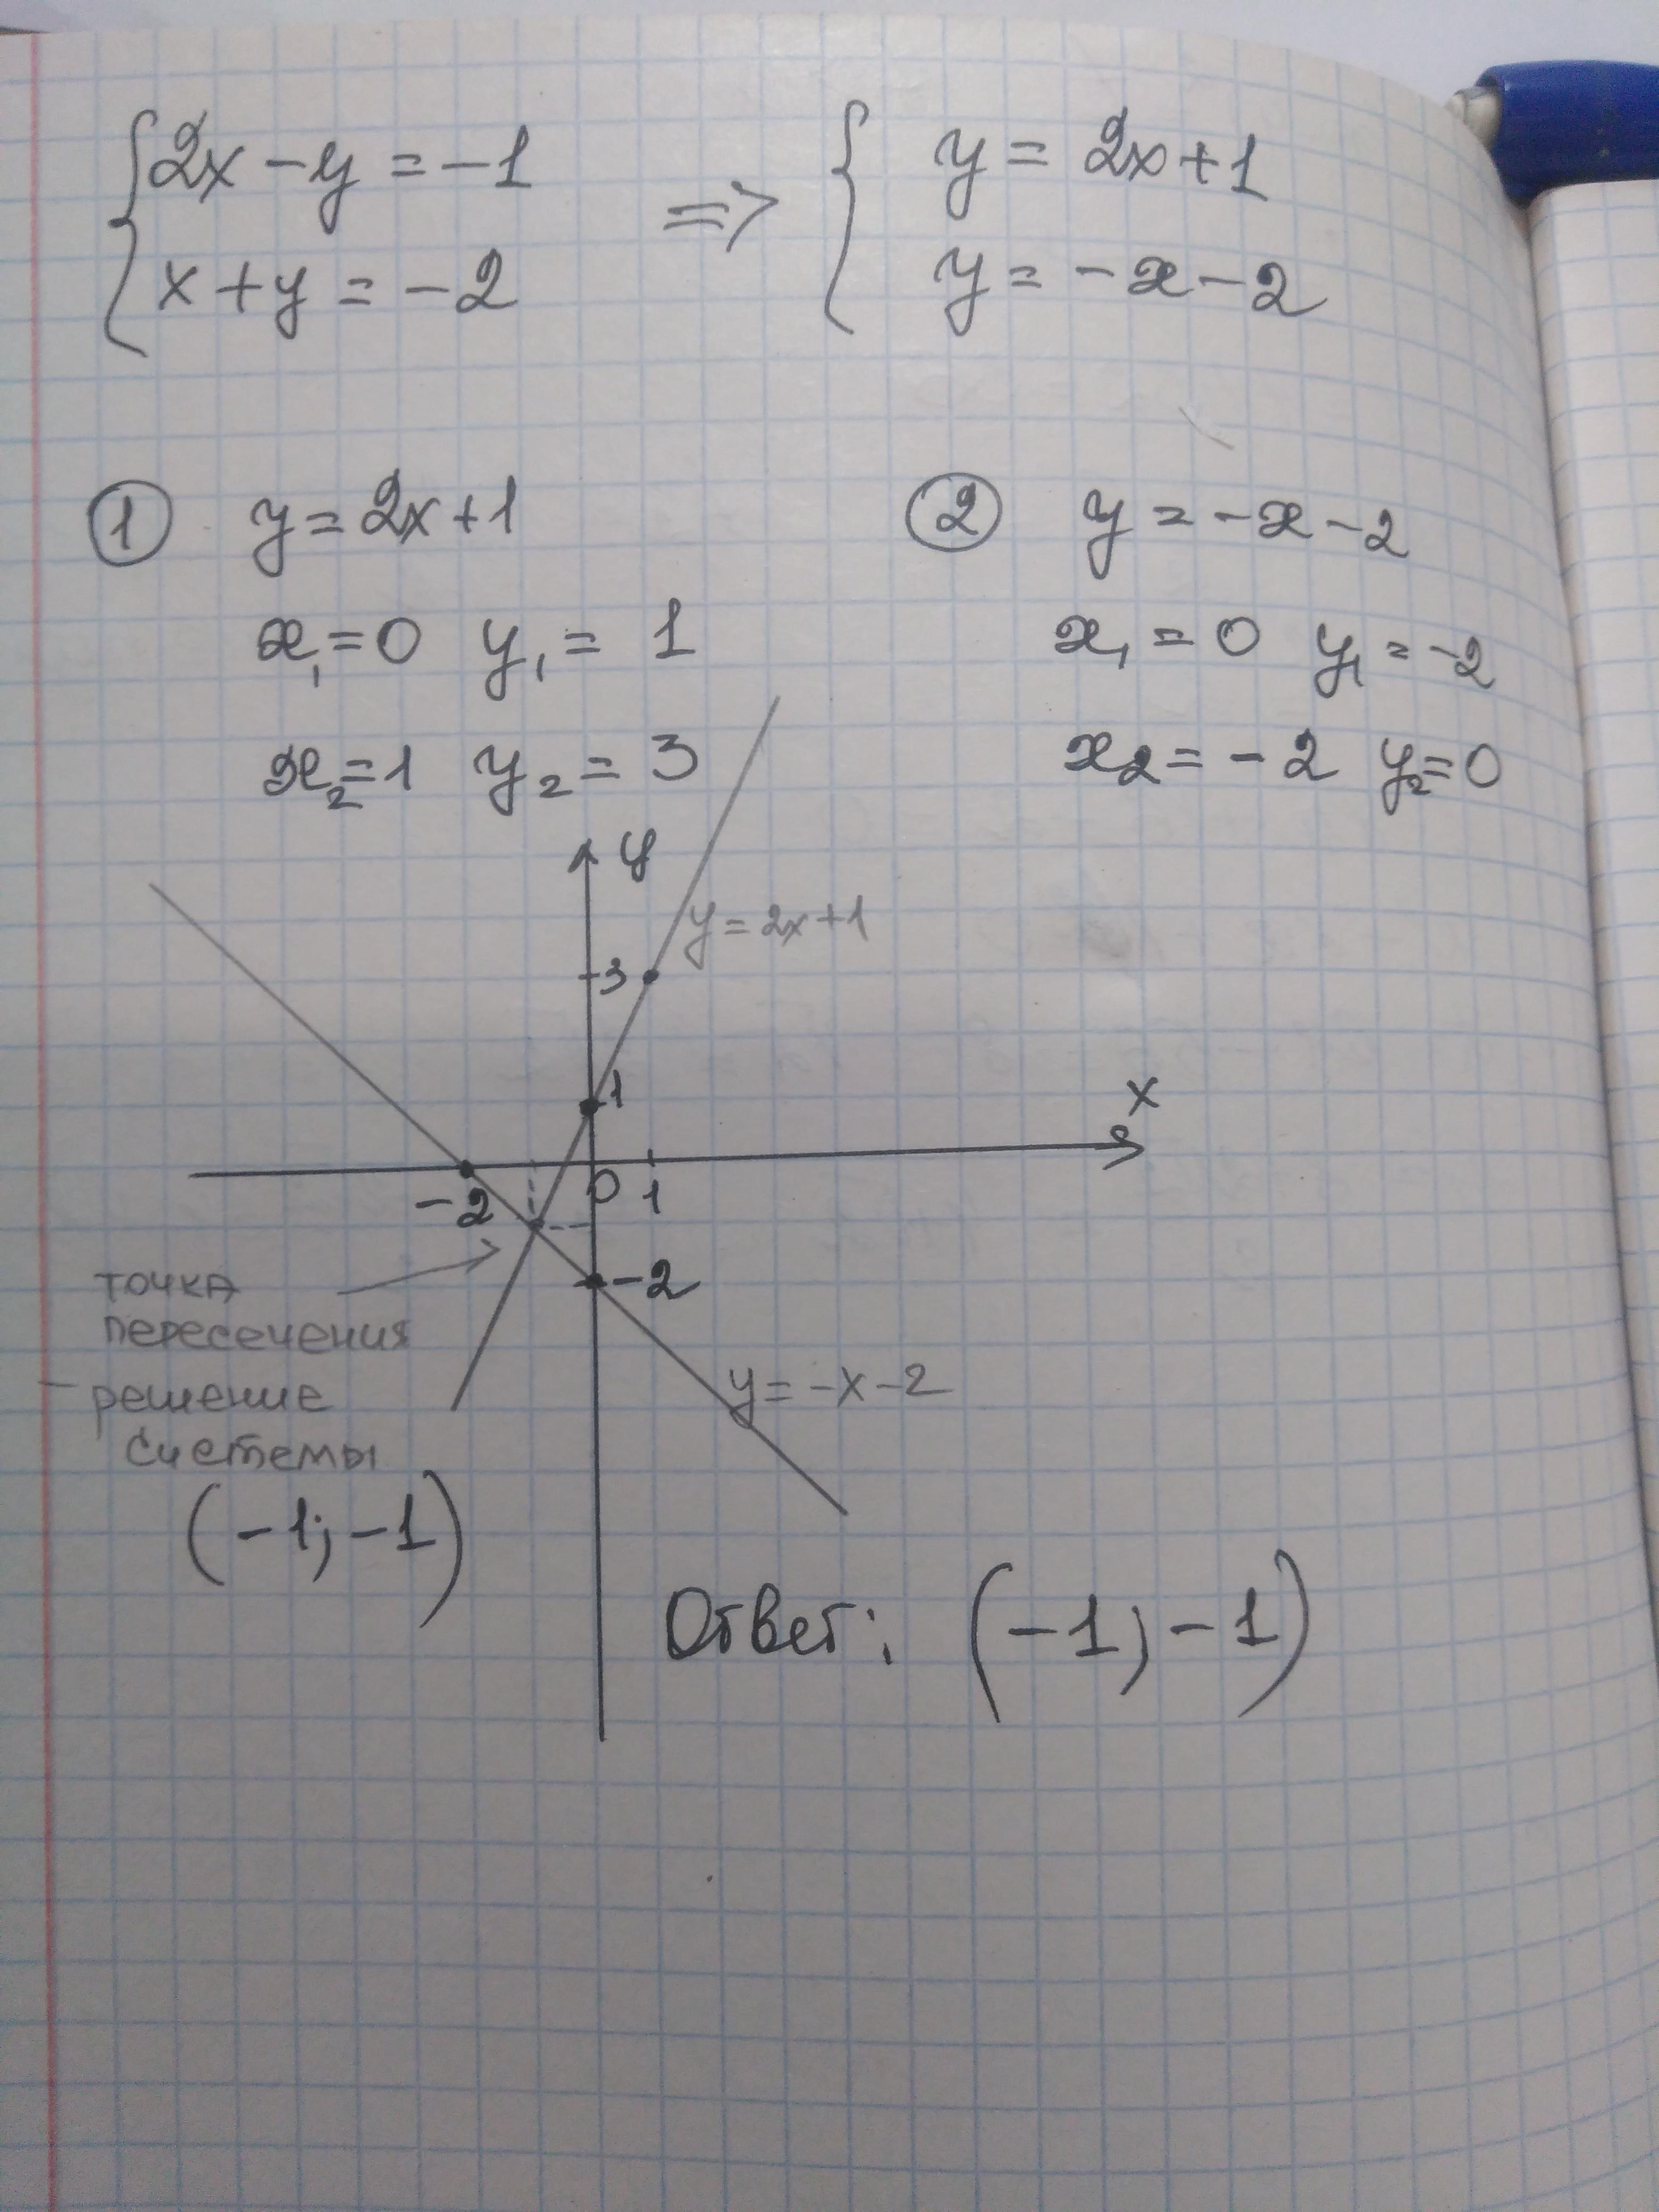 {2x - y = -1 => {y = 2x + 1
x + y = -2 y = -x - 2
① y = 2x + 1
x₁ = 0 y₁ = 1
x₂ = 1 y₂ = 3
② y = -x - 2
x₁ = 0 y₁ = -2
x₂ = -2 y₂ = 0
y
y = 2x + 1
3
1
x
-2
0
1
-2
y = -x - 2
точка
пересечения
- решение
системы
(-1; -1)
Ответ: (-1; -1)